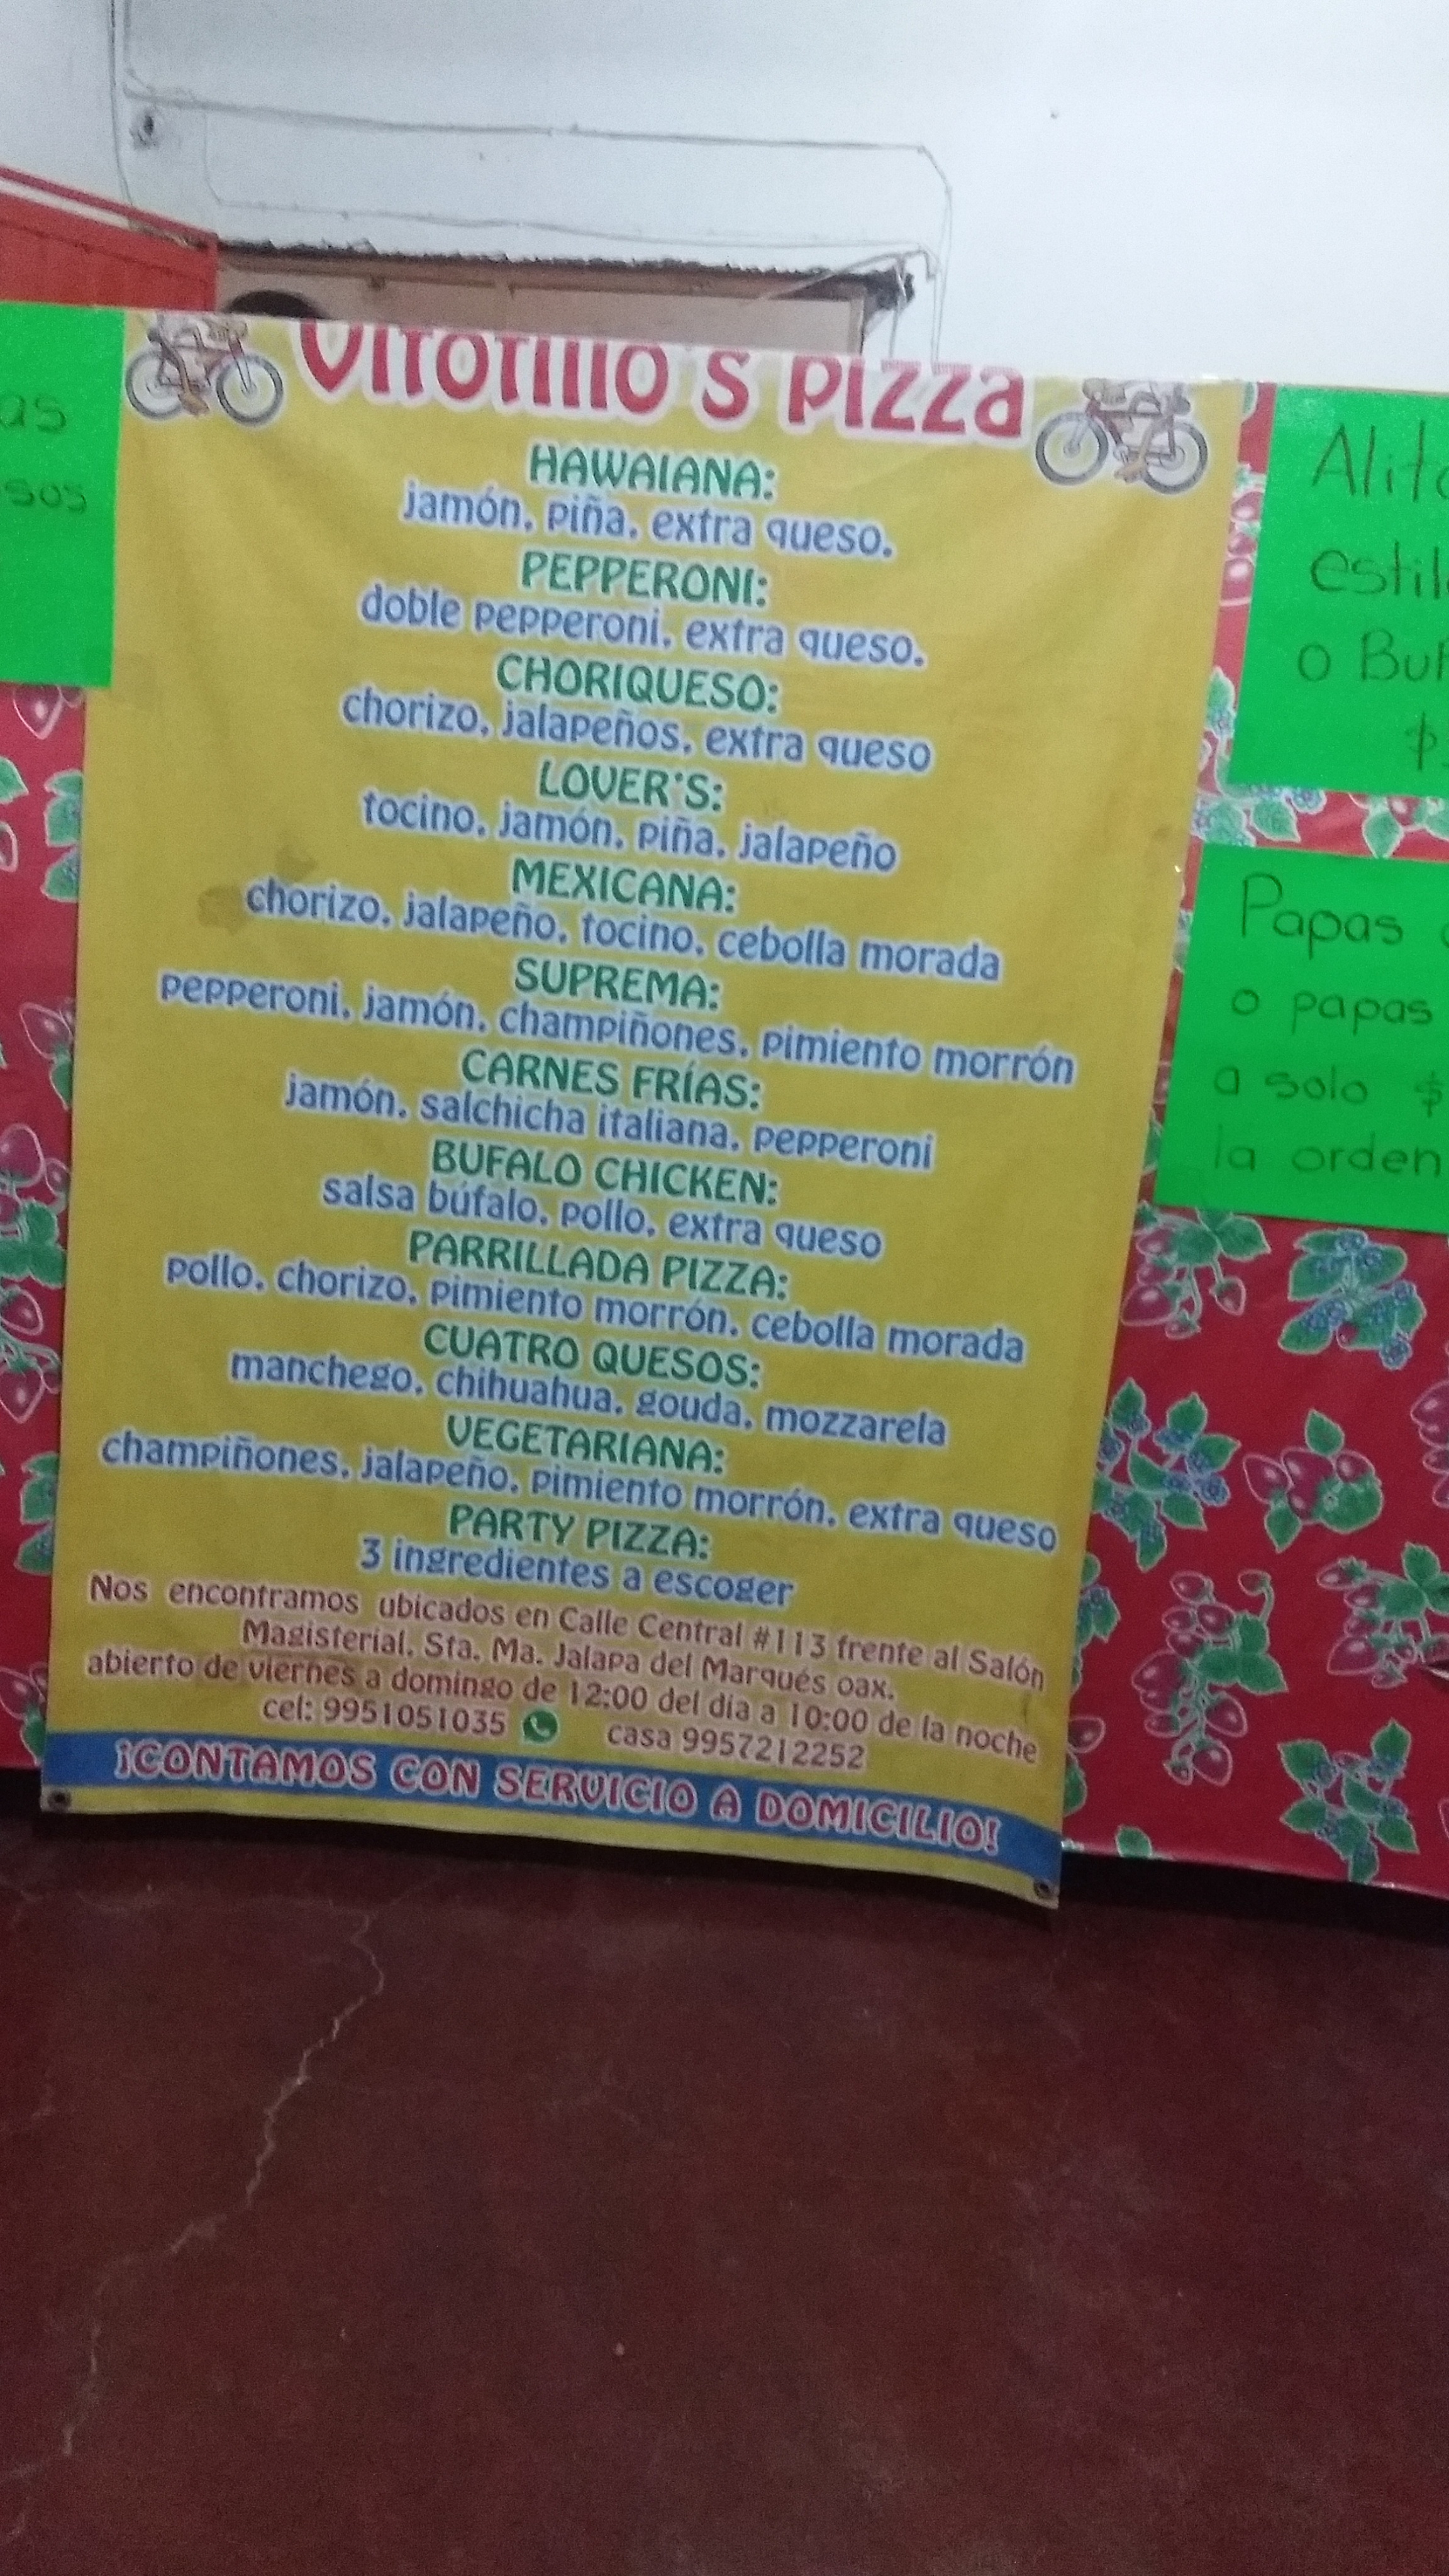 Vitotillo's pizza
HAWAIANA:
jamón, piña, extra queso.
PEPPERONI:
doble pepperoni, extra queso.
CHORIQUESO:
chorizo, jalapeños, extra queso
LOVER'S:
tocino, jamón, piña, jalapeño
MEXICANA:
chorizo, jalapeño, tocino, cebolla morada
SUPREMA:
pepperoni, jamón, champiñones, pimiento morrón
CARNES FRÍAS:
jamón, salchicha italiana, pepperoni
BUFALO CHICKEN:
salsa búfalo, pollo, extra queso
PARRILLADA PIZZA:
pollo, chorizo, pimiento morrón, cebolla morada
CUATRO QUESOS:
manchego, chihuahua, gouda, mozzarela
VEGETARIANA:
champiñones, jalapeño, pimiento morrón, extra queso
PARTY PIZZA:
3 ingredientes a escoger
Nos encontramos ubicados en Calle Central #113 frente al Salón
Magisterial, Sta. Ma. Jalapa del Marqués oax.
abierto de viernes a domingo de 12:00 del día a 10:00 de la noche
cel: 9951051035 casa 9957212252
¡CONTAMOS CON SERVICIO A DOMICILIO!
as
sos
Alit
estil
o Buf
$
Papas
o papas
a solo $
la orden